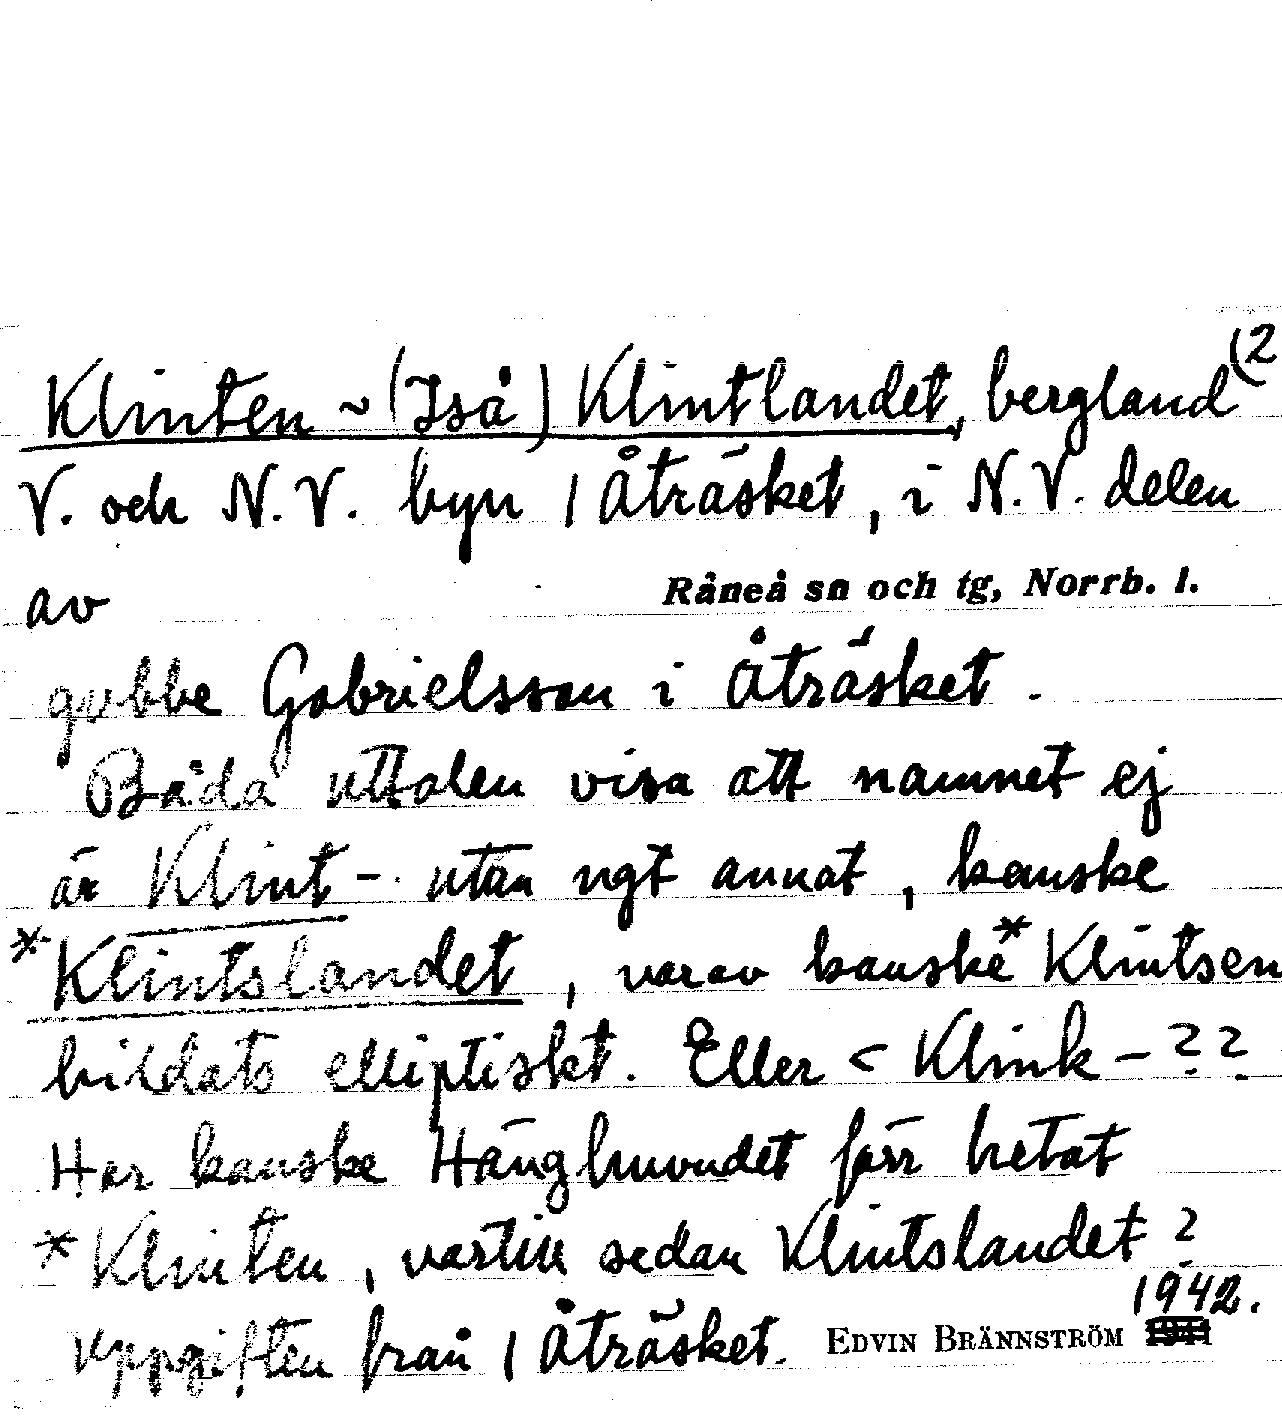 (2
Klinten ~ (Iså) Klintlandet, bergland
V. och N.V. byn 1 Åträsket, i N.V. delen
av Råneå sn och tg, Norrb. l.
gubbe Gabrielsson i Åträsket.
Båda uttalen visa att namnet ej
är Klint - utan ngt annat, kanske
*Klintslandet, varav kanske *Klintsen
bildats elliptiskt. Eller < Klink - ??
Har kanske Hänghuvudet förr hetat
*Klinten, vartill sedan Klintslandet?
1942.
Uppgiften från 1 Åträsket. EDVIN BRÄNNSTRÖM